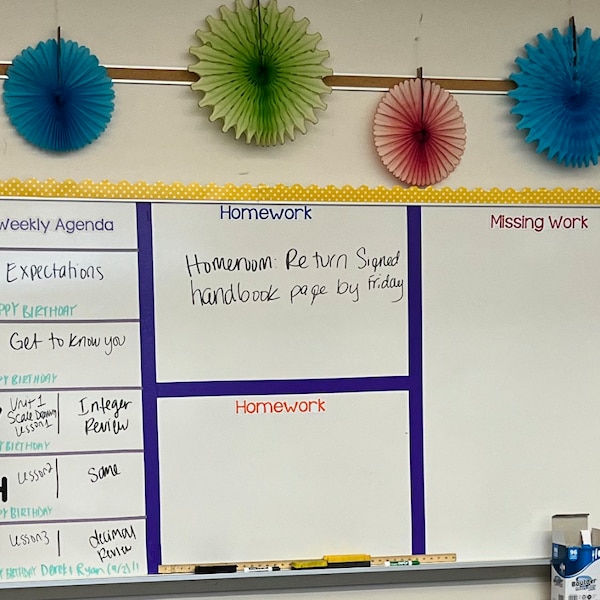 Weekly Agenda
Expectations
PPY BIRTHDAY
Get to know you
PY BIRTHDAY
Unit 1
Scale Drawing
Lesson 1
Integer
Review
BIRTHDAY
H
Lesson2
Same
PY BIRTHDAY
Lesson3
decimal
Review
BIRTHDAY Derek & Ryan (9/2)!!
Homework
Homeroom: Return Signed
handbook page by Friday
Homework
Missing Work